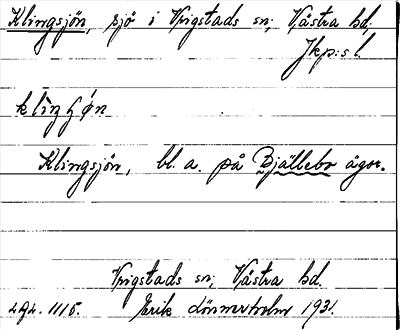 Klingsjön, sjö i Vrigstads sn; Västra hd.
Jkp:s l.
klìŋʃǿn
Klingsjön, bl. a. på Bjällebo ägor.
Vrigstads sn; Västra hd.
Erik Lönnerholm 1931.